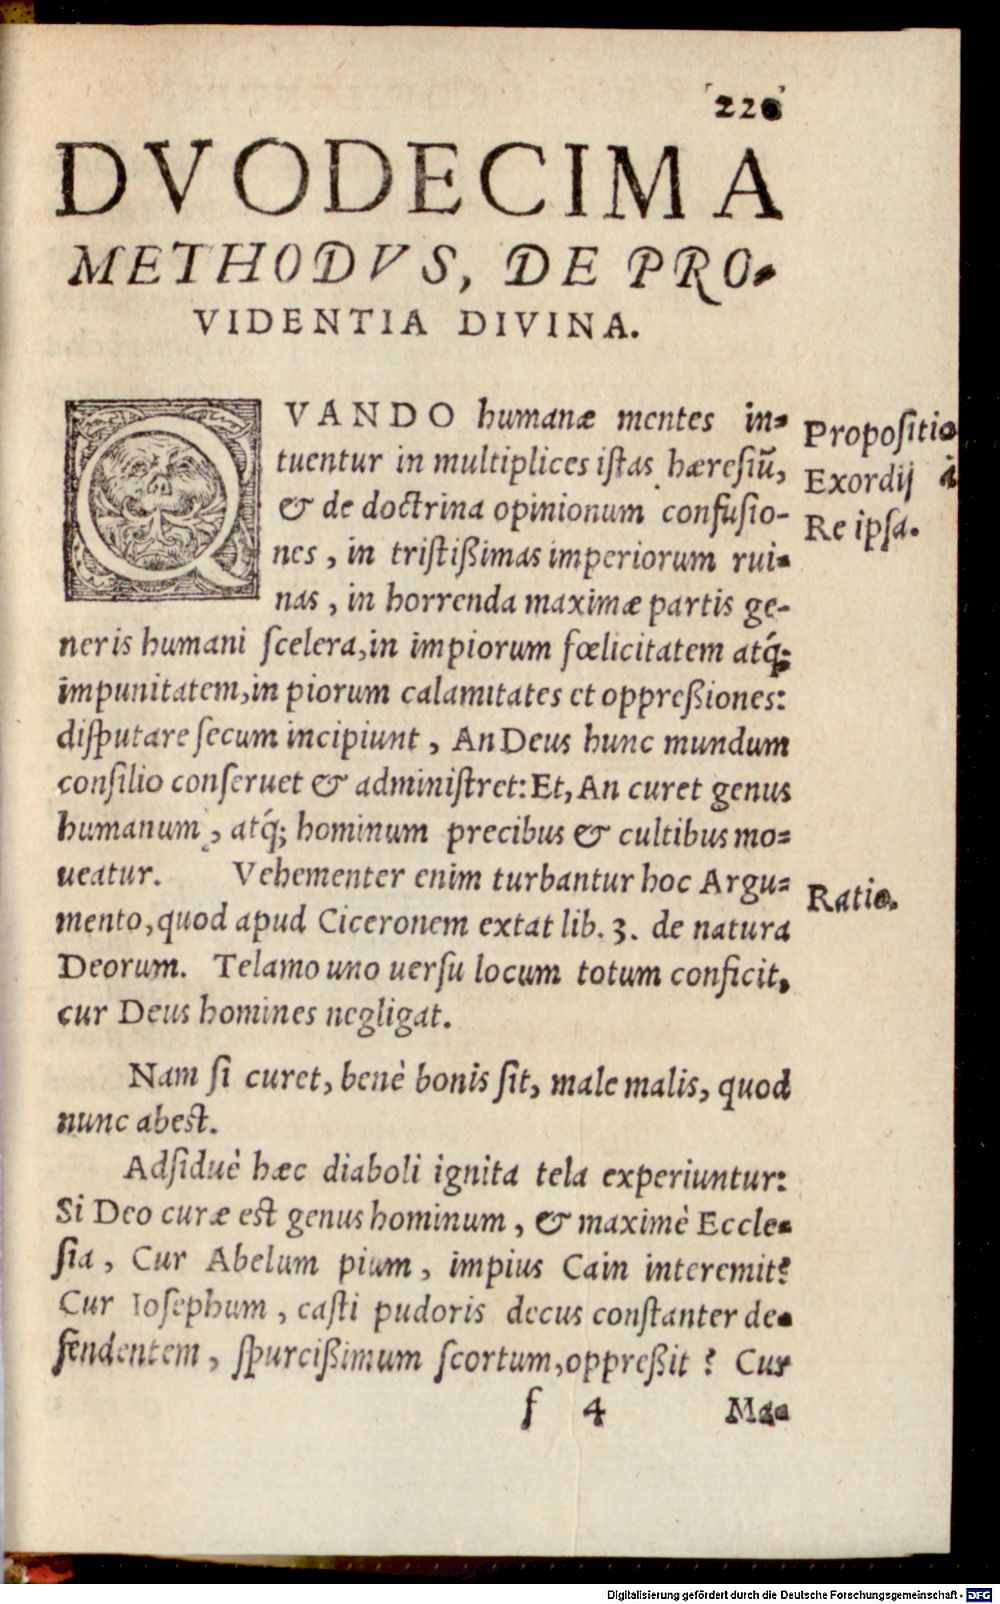 220
DVODECIMA
METHODVS, DE PRO-
VIDENTIA DIVINA.
QVANDO humanæ mentes in-
tuentur in multiplices iſtas hæreſiū,
& de doctrina opinionum confuſio-
nes, in triſtißimas imperiorum rui-
nas, in horrenda maximæ partis ge-
neris humani ſcelera, in impiorum fœlicitatem atq́;
impunitatem, in piorum calamitates et oppreßiones:
diſputare ſecum incipiunt, An Deus hunc mundum
conſilio conſeruet & adminiſtret: Et, An curet genus
humanum, atq́; hominum precibus & cultibus mo-
ueatur. Vehementer enim turbantur hoc Argu-
mento, quod apud Ciceronem extat lib. 3. de natura
Deorum. Telamo uno uerſu locum totum conficit,
cur Deus homines negligat.
Nam ſi curet, benè bonis ſit, male malis, quod
nunc abeſt.
Adſiduè hæc diaboli ignita tela experiuntur:
Si Deo curæ eſt genus hominum, & maximè Eccle-
ſia, Cur Abelum pium, impius Cain interemit?
Cur Ioſephum, caſti pudoris decus conſtanter de-
fendentem, ſpurcißimum ſcortum, oppreßit? Cur
f 4 Ma-
Propoſitio
Exordij à
Re ipſa.
Ratio.
Digitalisierung gefördert durch die Deutsche Forschungsgemeinschaft - DFG